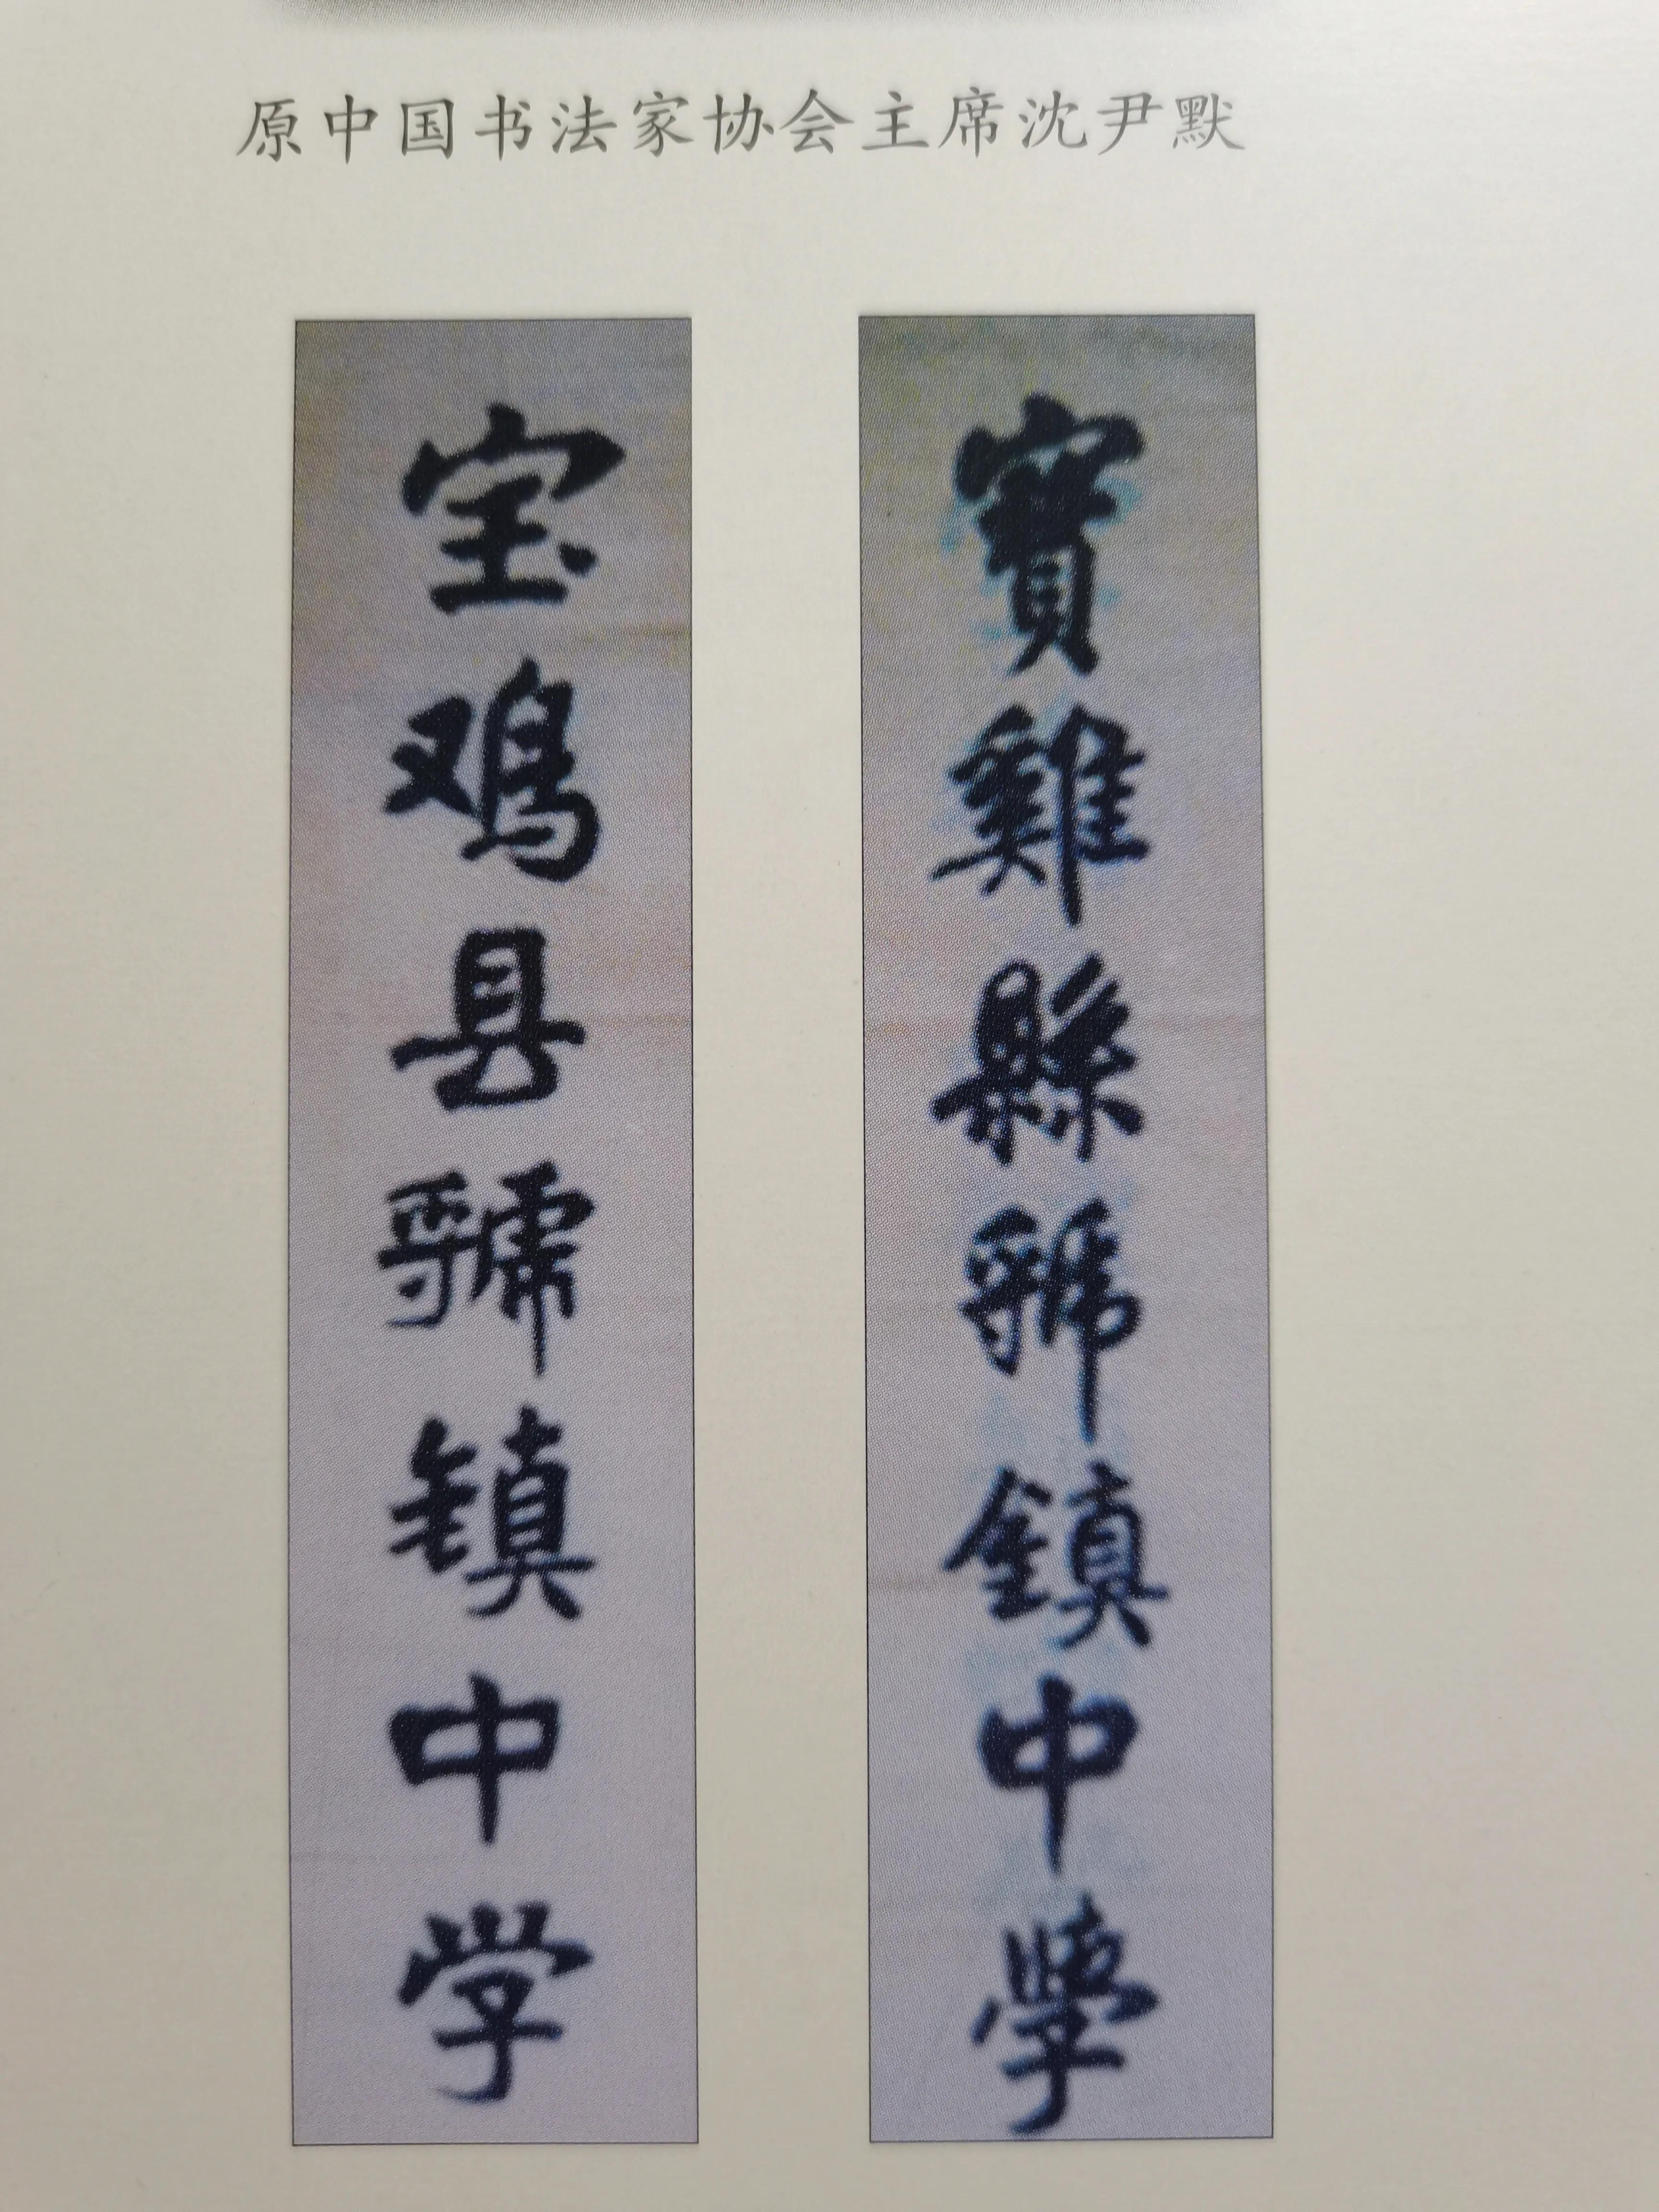 原中国书法家协会主席沈尹默
寳雞縣虢鎮中學
宝鸡县虢镇中学